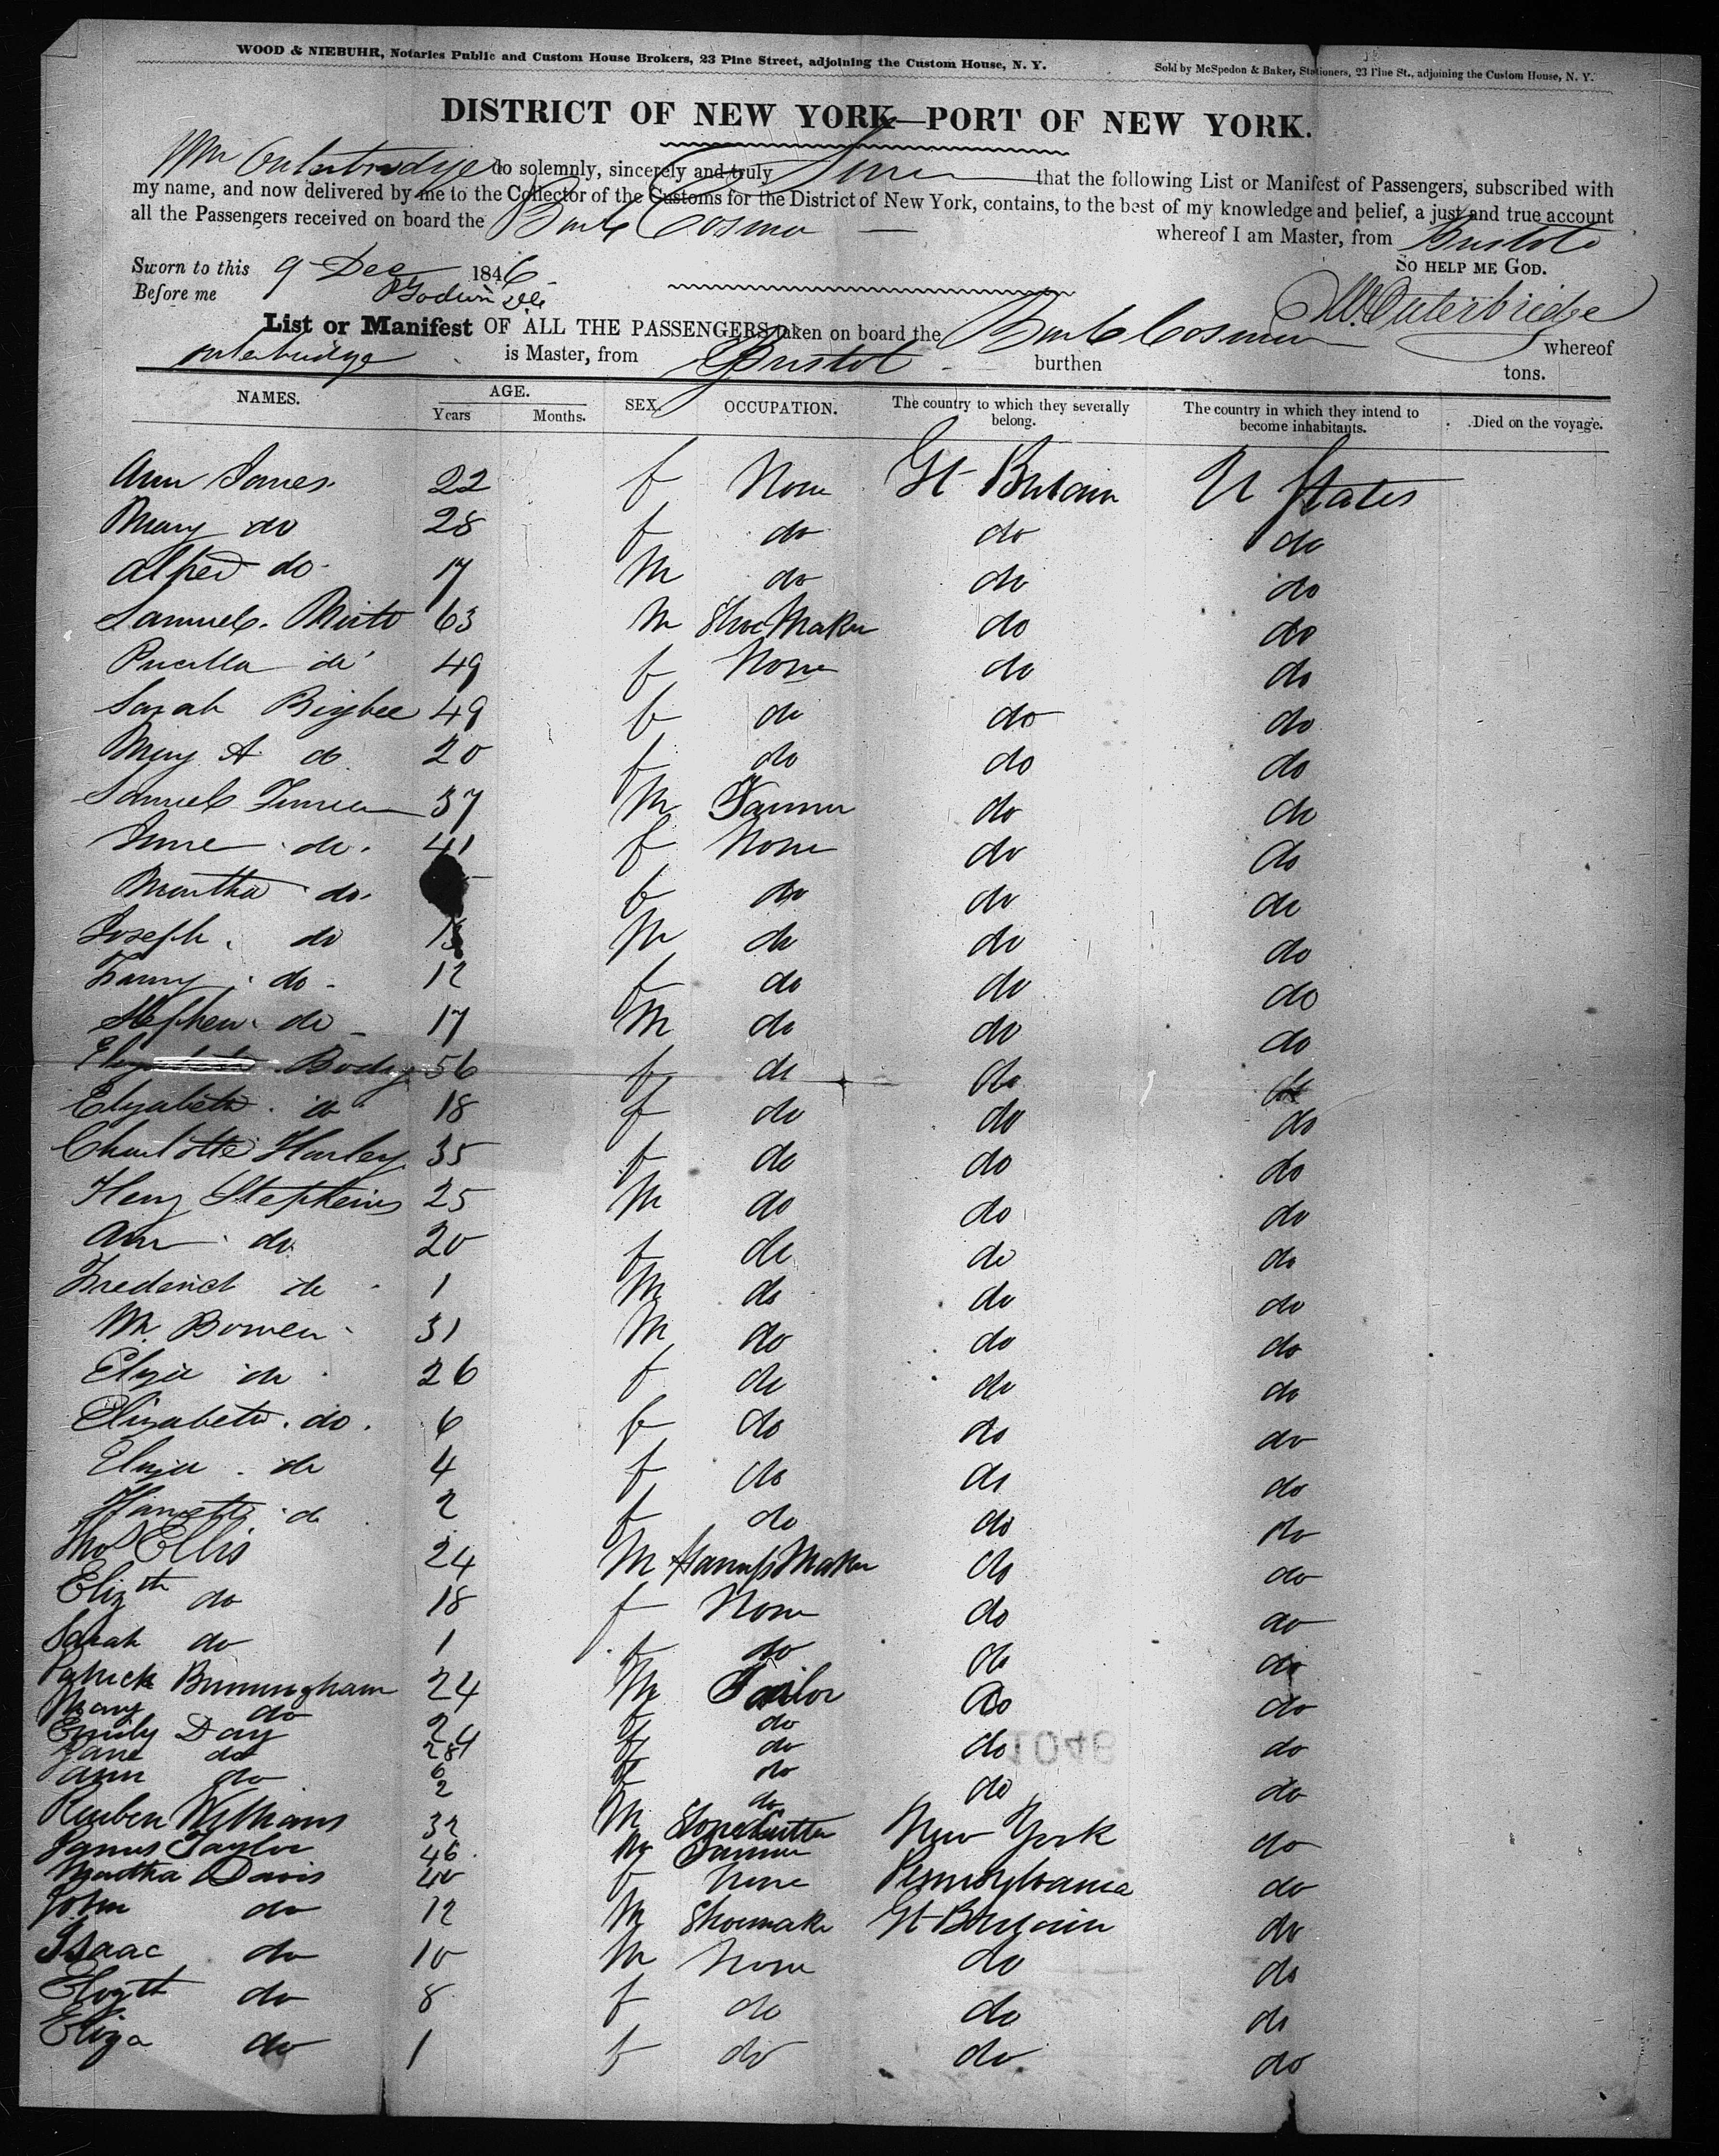 WOOD & NIEBUHR, Notaries Public and Custom House Brokers, 23 Pine Street, adjoining the Custom House, N. Y.
Sold by McSpedon & Baker, Stationers, 23 Pine St., adjoining the Custom House, N. Y.
DISTRICT OF NEW YORK—PORT OF NEW YORK.
Wm Outerbridge do solemnly, sincerely and truly Swear that the following List or Manifest of Passengers, subscribed with
my name, and now delivered by me to the Collector of the Customs for the District of New York, contains, to the best of my knowledge and belief, a just and true account
all the Passengers received on board the Bark Cosmo whereof I am Master, from Bristol
Sworn to this 9 Dec 1846 SO HELP ME GOD.
Before me
W. Outerbridge
List or Manifest OF ALL THE PASSENGERS taken on board the Bark Cosmo whereof
Outerbridge is Master, from Bristol burthen tons.
NAMES. AGE. Years Months. SEX. OCCUPATION. The country to which they severally belong. The country in which they intend to become inhabitants. Died on the voyage.
Ann James 22 f None Gt Britain U States
Mary do 28 f do do do
Alfred do 17 M do do do
Samuel 63 M Shoe Maker do do
do 49 f None do do
Sarah Bigbee 49 f do do do
Mary A do 20 f do do do
Samuel 37 M do do
do 41 f None do do
Martha do f do do do
Joseph do M do do do
Fanny do 12 f do do do
Stephen do 17 M do do do
Body 56 f do do do
Elizabeth do 18 f do do do
Charlotte Harley 35 f do do do
Heny Stephens 25 M do do do
Ann do 20 f do do do
Frederick do 1 M do do do
M. Bowen 31 M do do do
Eliza do 26 f do do do
Elizabeth do 6 f do do do
Eliza do 4 f do do do
Harriett do 2 f do do do
Thos Ellis 24 M Harness Maker do do
Elizth do 18 f None do do
Sarah do 1 f do do do
Patrick Birmingham 24 M Tailor do do
Mary do 24 f do do do
Emily Day 28 f do do do
Jane do 6 f do
Ann do 2 f do
Reuben Williams 32 M Stonecutter New York do
James Taylor 46 M
Martha Davis 40 f None Pennsylvania do
John do 12 M Shoemaker Gt Britain do
Isaac do 10 M None do do
Elizth do 8 f do do do
Eliza do 1 f do do do